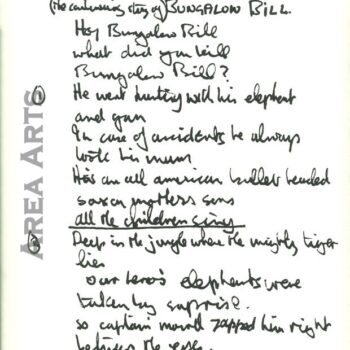 (The continuing story of) BUNGALOW BILL.
Hey Bungalow Bill
what did you kill
Bungalow Bill?
① He went hunting with his elephant
and gun
In case of accidents he always
took his mum
He's an all american bullet headed
saxon mothers sons
all the children sing
② Deep in the jungle where the mighty tiger
lies
our hero's elephants were
taken by surprise.
so captain marvel zapped him right
between the eyes.
AREA ARTS